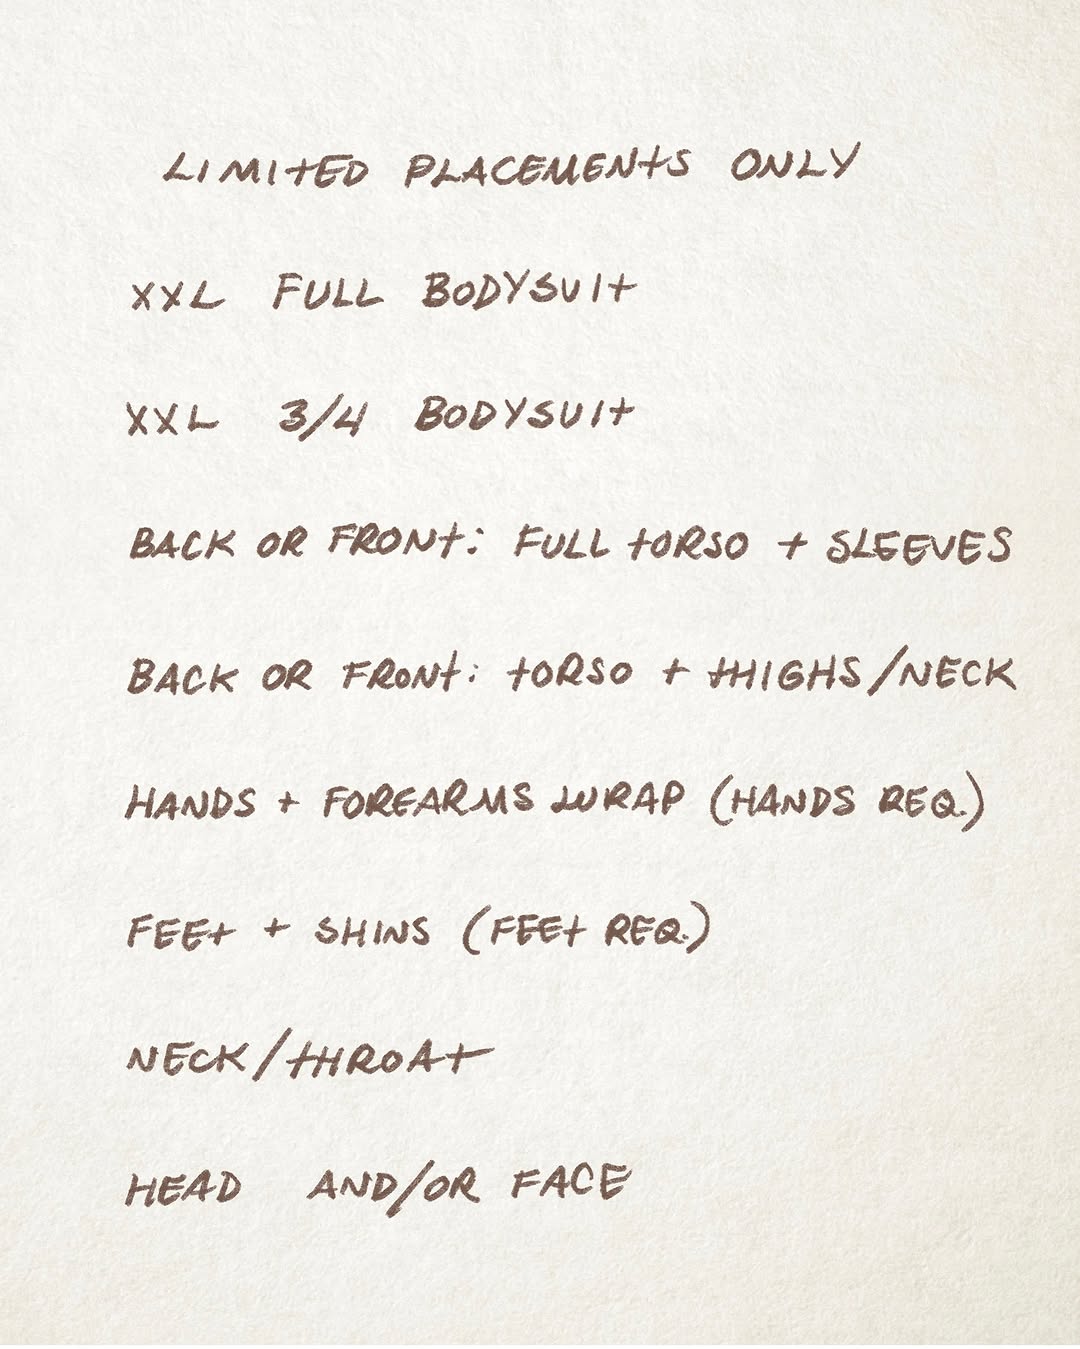 LIMITED PLACEMENTS ONLY
XXL FULL BODYSUIT
XXL 3/4 BODYSUIT
BACK OR FRONT: FULL TORSO + SLEEVES
BACK OR FRONT: TORSO + THIGHS/NECK
HANDS + FOREARMS WRAP (HANDS REQ.)
FEET + SHINS (FEET REQ.)
NECK/THROAT
HEAD AND/OR FACE